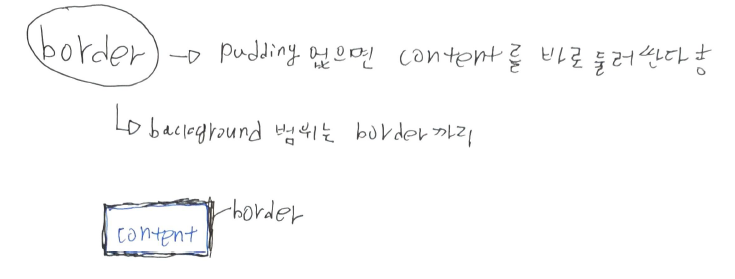 border → pudding 없으면 content를 바로 둘러싼다 ㅎ
↳ background 범위는 border까지
border
content